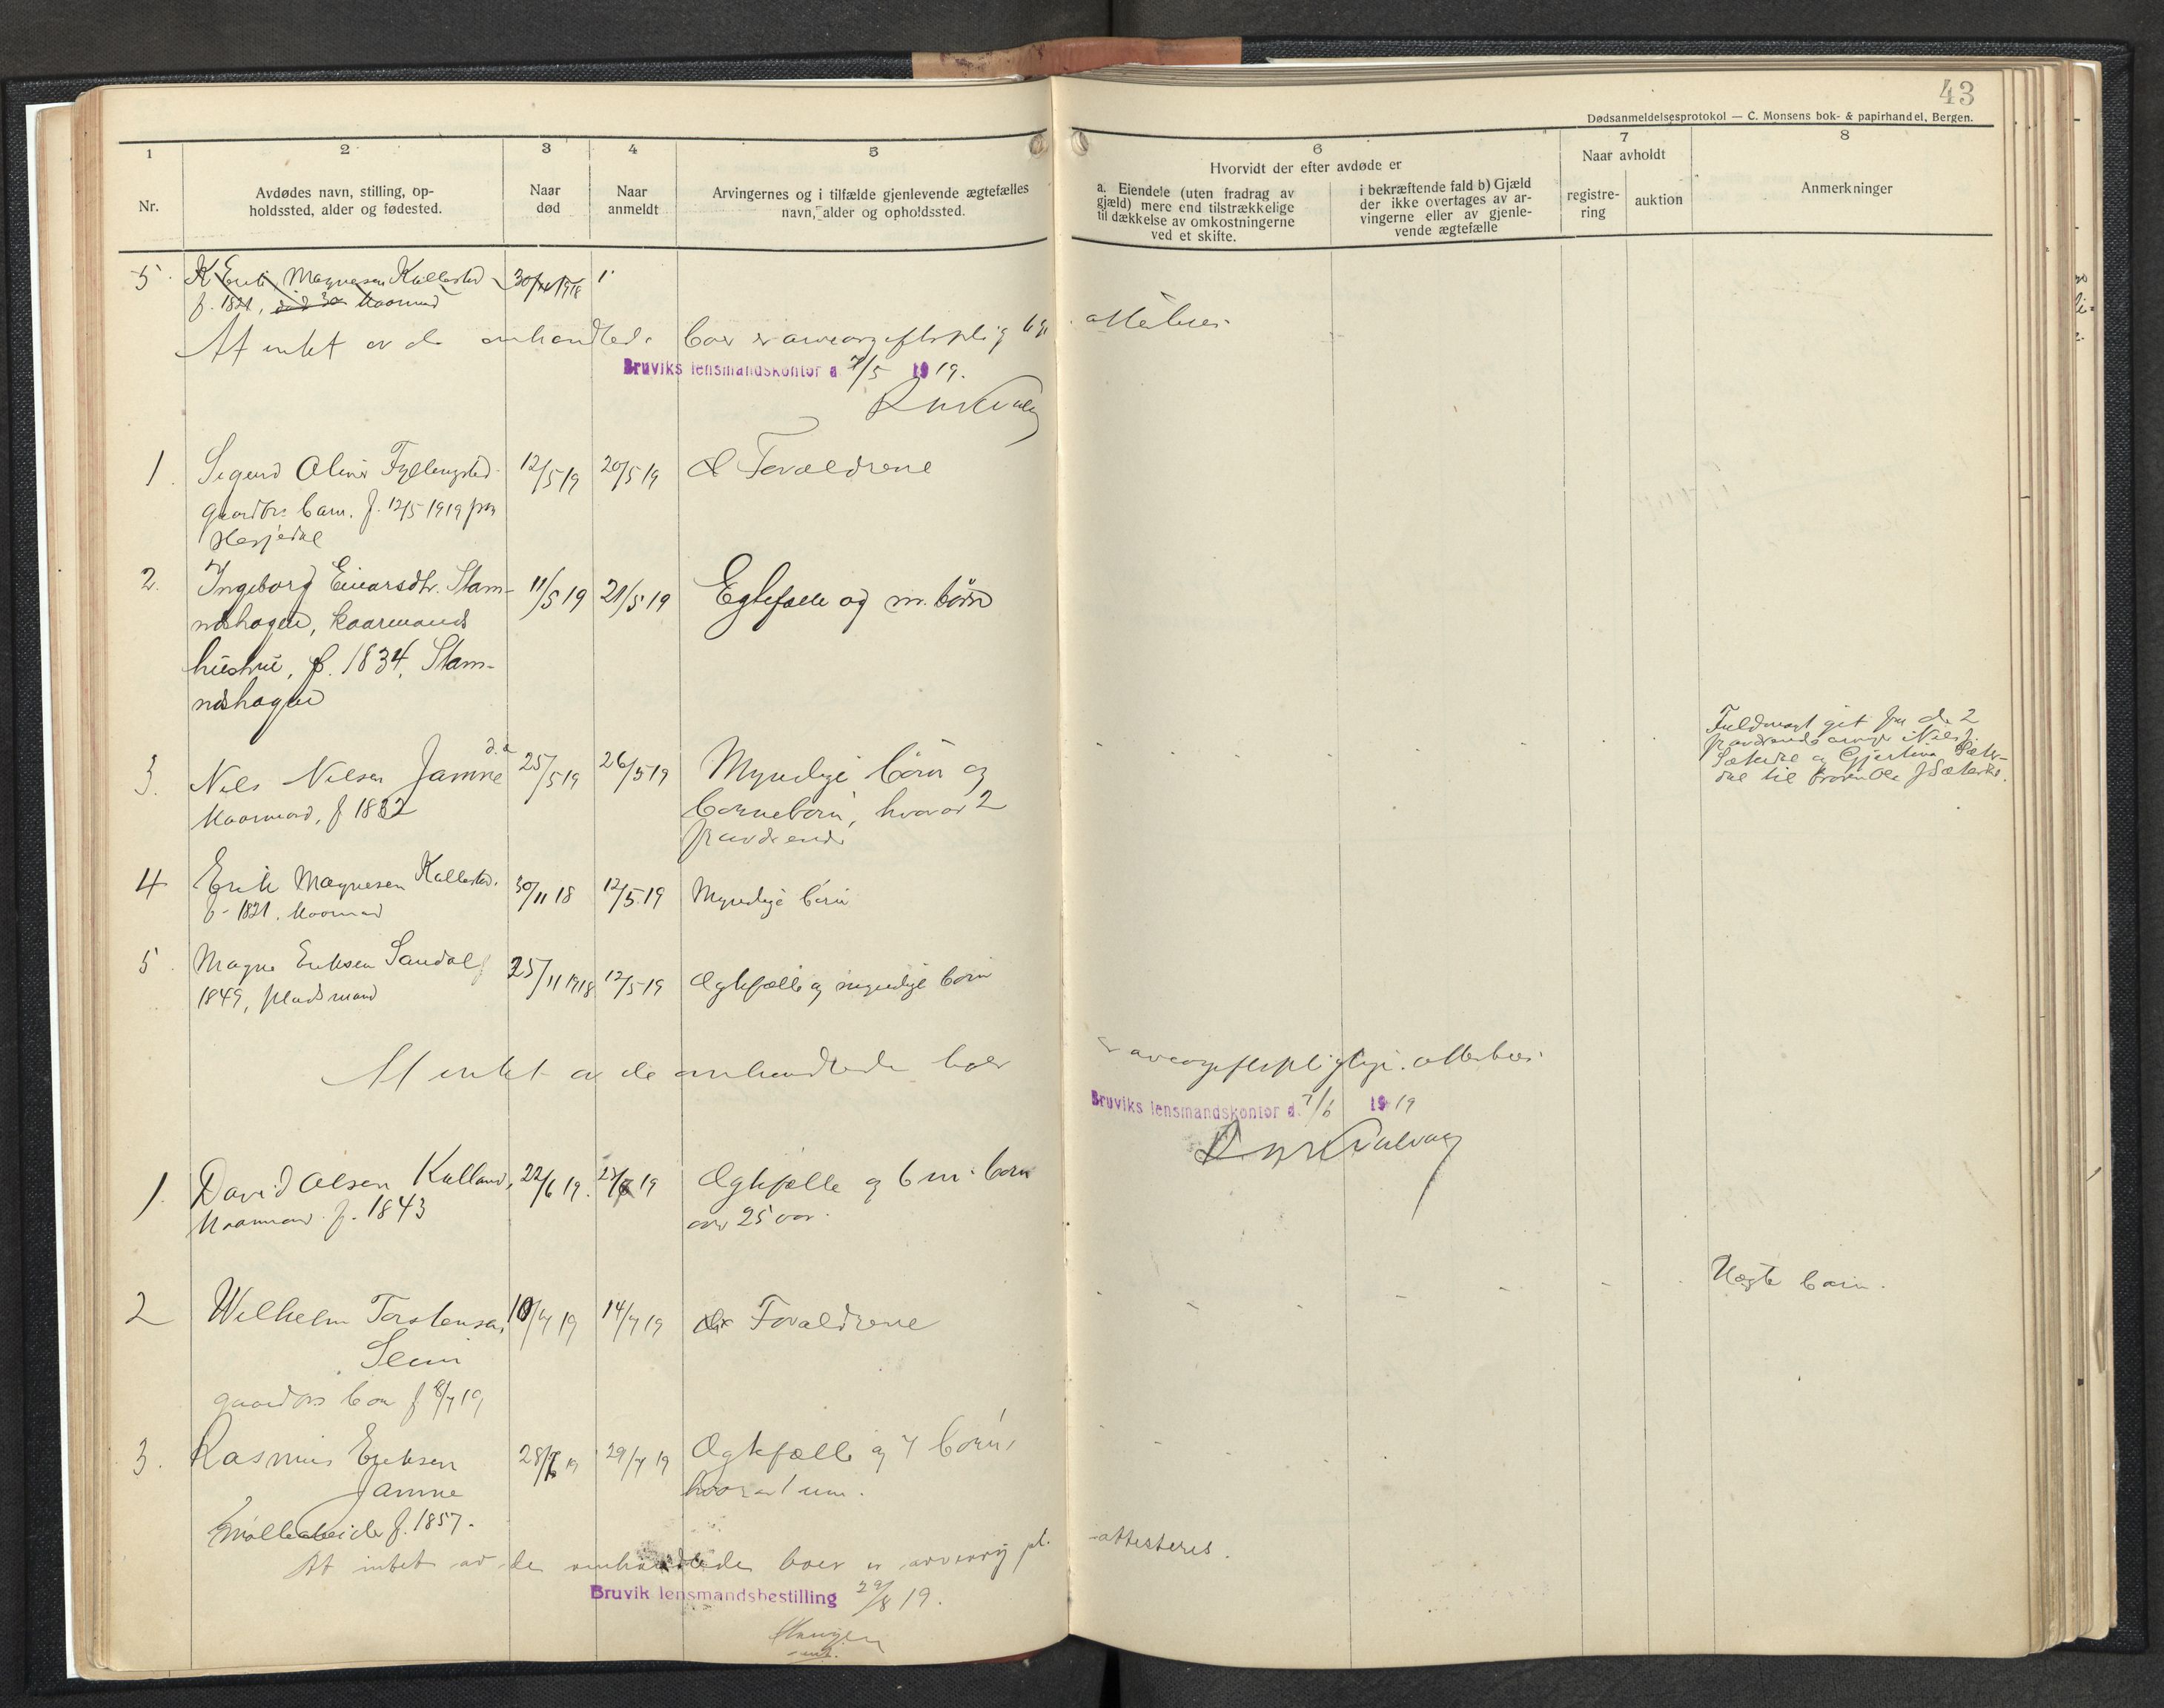 43
Dødsanmeldelsesprotokol — C. Monsens bok- & papirhandel, Bergen.
1
Nr.
2
Avdødes navn, stilling, op-
holdssted, alder og fødested.
3
Naar
død
4
Naar
anmeldt
5
Arvingernes og i tilfælde gjenlevende ægtefælles
navn, alder og opholdssted.
6
Hvorvidt der efter avdøde er
a. Eiendele (uten fradrag av
gjæld) mere end tilstrækkelige
til dækkelse av omkostningerne
ved et skifte.
i bekræftende fald b) Gjæld
der ikke overtages av ar-
vingerne eller av gjenle-
vende ægtefælle
7
Naar avholdt
registre-
ring
auktion
8
Anmerkninger
5. Erik Magnesen Kallestad 30/11 1918
f. 1821, Kaarmand
At intet av de omhandlede boer er arveavgiftspligtige attesteres
Bruviks lensmandskontor d. 7/5 1919.
1. Sigurd Oliver Fyllingsted 12/5 19 20/5 19 Forældrene
gaardbr. barn. f. 12/5 1919 paa
Hesjedal
2. Ingeborg Einarsdtr. Stam- 11/5 19 21/5 19 Egtefælle og m. børn
neshagen, kaarmands
hustru, f. 1834, Stam-
neshagen
3. Nils Nilsen Jamne d.æ. 25/5 19 26/5 19 Myndige børn og
Kaarmand, f 1832 børnebørn, hvorav 2
fraværende
Fuldmagt git fra de 2
fraværende arvinger Nils J.
Sæterdal og Gjertina Sæter-
dal til broren Ole J Sæterdal.
4 Erik Magnesen Kallestad. 30/11 18 12/5 19 Myndige børn
f. 1821. Kaarmand
5. Magne Eriksen Sandal f 25/11 1918 12/5 19 Ægtefælle og myndige børn
1849, pladsmand
At intet av de omhandlede boer er arveavgiftspligtige. attesteres.
Bruviks lensmandskontor d. 7/6 1919
1. David Olsen Kalland, 22/6 19. 23/6 19 Ægtefælle og 6 m. børn
Kaarmand f. 1843 over 25 aar.
2 Wilhelm Torstensen 10/7 19 14/7 19 Forældrene
gaardbrs barn f 8/7 19
Uegte barn.
3. Rasmus Eriksen 28/7 19 29/7 19 Ægtefælle og 7 børn,
Jamne hvorav 1 um.
Møllearbeider f. 1857.
At intet av de omhandlede boer er arveavg. pl. attesteres.
Bruvik lensmandsbestilling 29/8 19.